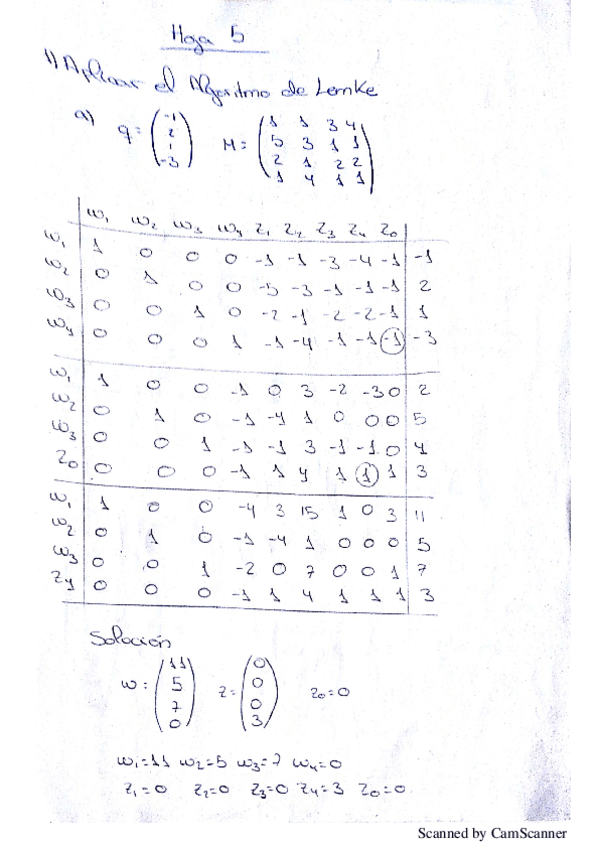 Hoja 5
1) Aplicar el Algoritmo de Lemke
a) q = (-1 2 1 -3) M = (1 1 3 4
5 3 1 1
2 1 2 2
1 4 1 1)
w1 w2 w3 w4 z1 z2 z3 z4 z0
w1 1 0 0 0 -1 -1 -3 -4 -1 -1
w2 0 1 0 0 -5 -3 -1 -1 -1 2
w3 0 0 1 0 -2 -1 -2 -2 -1 1
w4 0 0 0 1 -1 -4 -1 -1 -1 -3
w1 1 0 0 -1 0 3 -2 -3 0 2
w2 0 1 0 -1 -4 1 0 0 0 5
w3 0 0 1 -1 -1 3 -1 -1 0 4
z0 0 0 0 -1 1 4 1 1 1 3
w1 1 0 0 -4 3 15 1 0 3 11
w2 0 1 0 -1 -4 1 0 0 0 5
w3 0 0 1 -2 0 7 0 0 1 7
z4 0 0 0 -1 1 4 1 1 1 3
Solución
w: (11 5 7 0) z = (0 0 0 3) z0 = 0
w1=11 w2=5 w3=7 w4=0
z1=0 z2=0 z3=0 z4=3 z0=0
Scanned by CamScanner